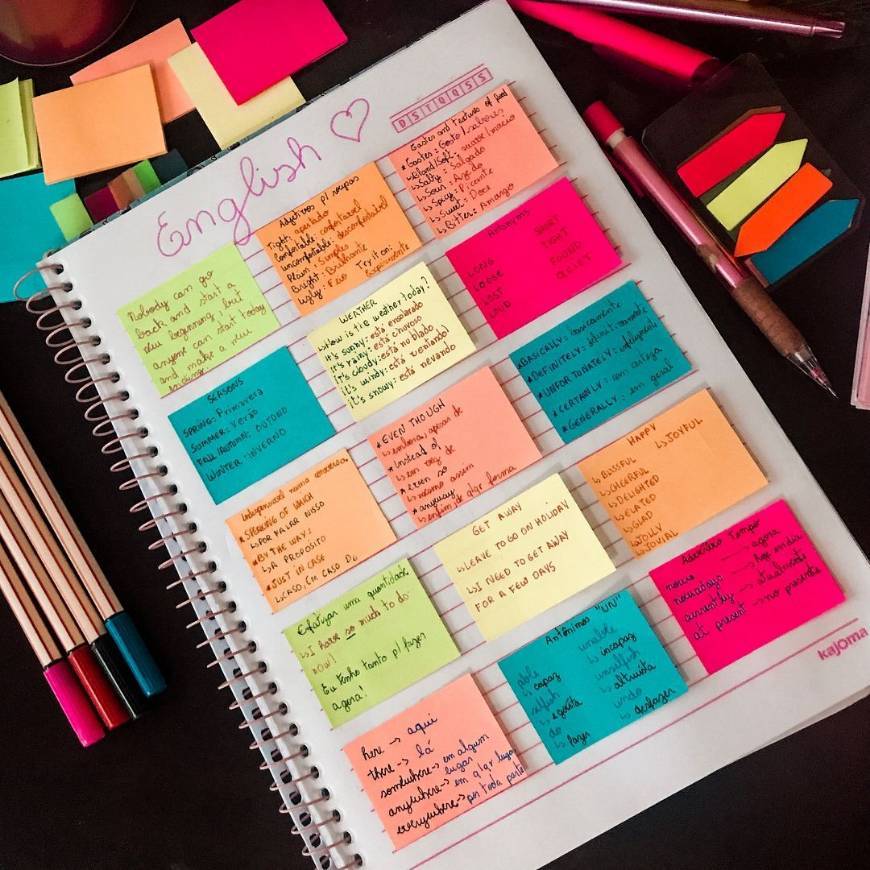 English
D S T Q Q S S
Nobody can go
back and start a
new beginning, but
anyone can start today
and make a new
Adjetivos p/ roupas
Tight: apertado
Comfortable: confortável
uncomfortable: desconfortável
Plain: Simples
Bright: Brilhante
Ugly: Feio Try it on:
Experimente
Gastes and Textures of food
*Gastes: Gosto/sabores
*Bland/Soft: suave/macio
↳ Salty: Salgado
↳ Sour: Azedo
↳ Spicy: Picante
↳ Sweet: Doce
↳ Bitter: Amargo
SEASONS
SPRING: Primavera
SUMMER: Verão
FALL/AUTUMN: OUTONO
WINTER: INVERNO
WEATHER
How is the weather today?
It's sunny: está ensolarado
It's rainy: está chuvoso
It's cloudy: está nublado
It's windy: está ventando!
It's snowy: está nevando
Antonyms
LONG SHORT
LOOSE TIGHT
LOST FOUND
LOUD QUIET
*SPEAKING OF WHICH
↳ POR FALAR NISSO
*BY THE WAY:
↳ A PROPÓSITO
*JUST IN CASE
↳ CASO, EM CASO DE
*EVEN THOUGH
↳ embora, apesar de
*Instead of
↳ em vez de
*Even so
↳ mesmo assim
*anyway
↳ enfim, de qlqr forma
*BASICALLY: basicamente
*DEFINITELY: definitivamente
*UNFORTUNATELY: infelizmente
*CERTAINLY: com certeza
*GENERALLY: em geral
Enfatizar uma quantidade
↳ I have so much to do
now!
Eu tenho tanto p/ fazer
agora!
GET AWAY
↳ LEAVE TO GO ON HOLIDAY
↳ I NEED TO GET AWAY
FOR A FEW DAYS
HAPPY
↳ BLISSFUL ↳ JOYFUL
↳ CHEERFUL
↳ DELIGHTED
↳ ELATED
↳ GLAD
↳ JOLLY
↳ JOVIAL
here → aqui
there → lá
somewhere → em algum
lugar
anywhere → em qlqr lugar
everywhere → por toda parte
Antônimos "UN"
able unable
↳ capaz ↳ incapaz
selfish unselfish
↳ egoísta ↳ altruísta
do undo
↳ fazer ↳ desfazer
Advérbios Tempo
now → agora
nowadays → Hoje em dia
currently → atualmente
at present → no presente
kajoma